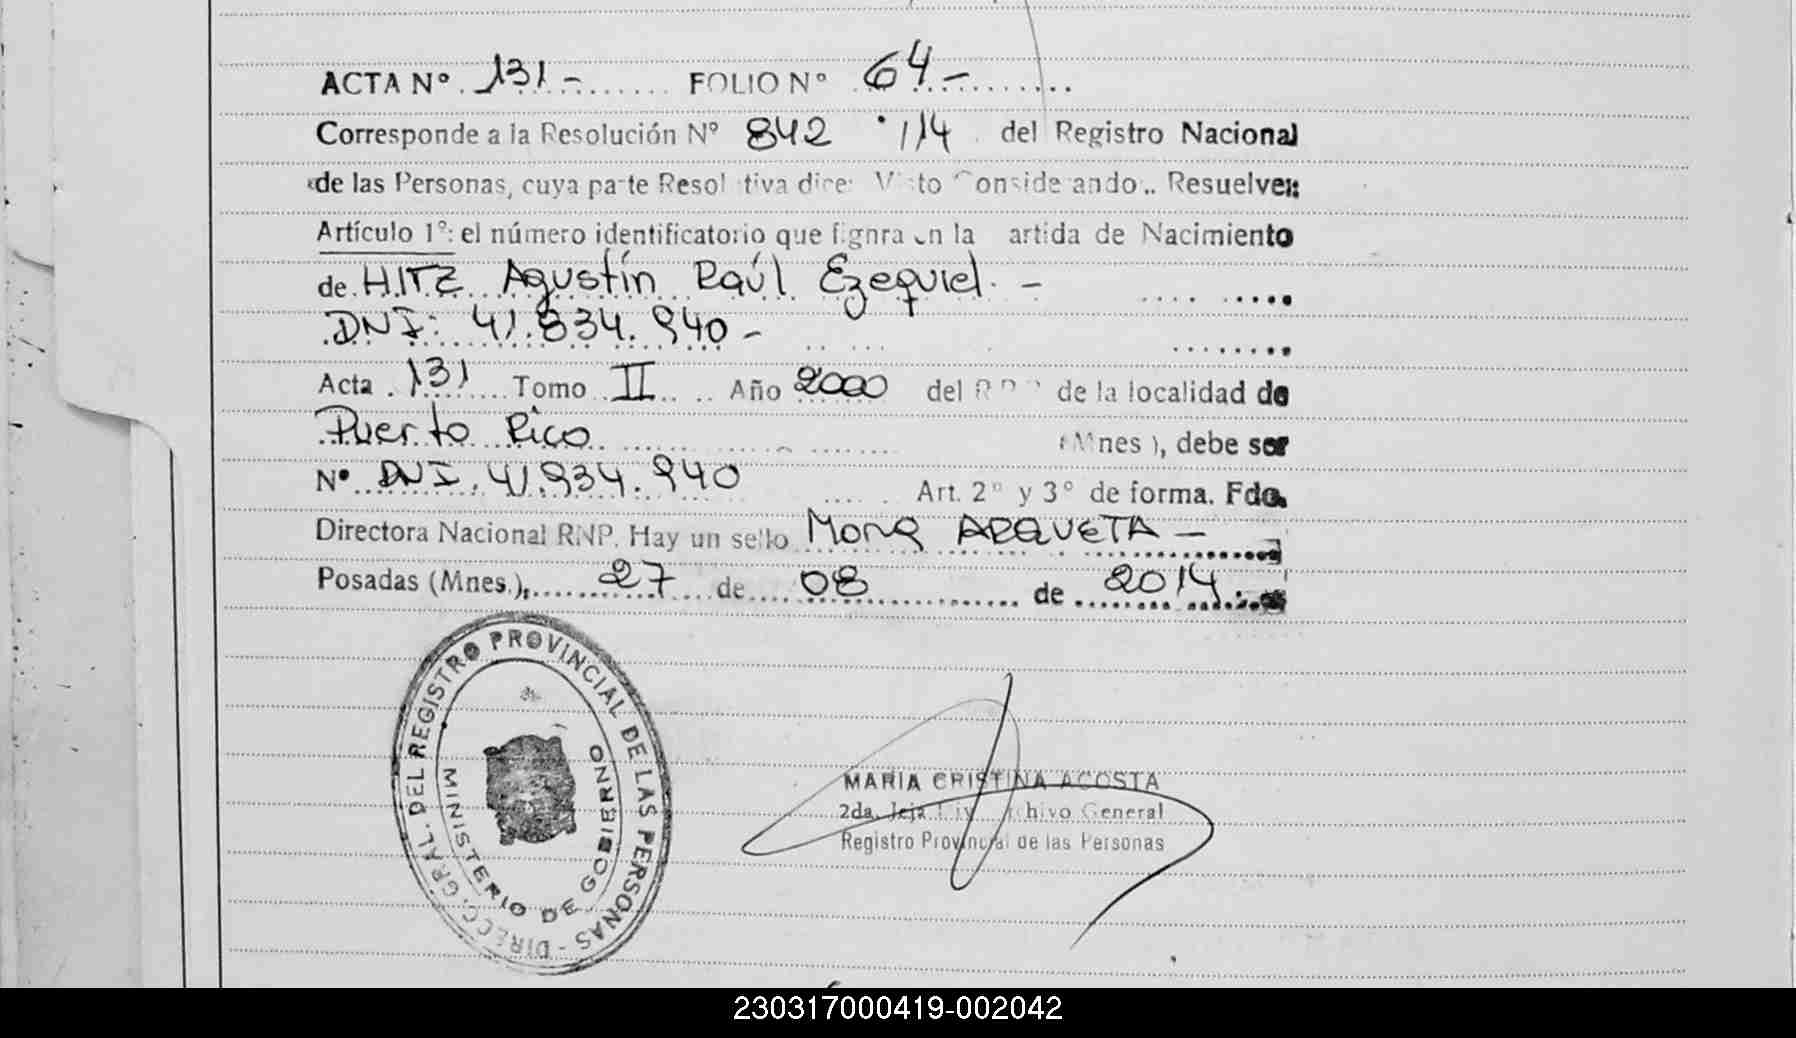 ACTA Nº 131- FOLIO Nº 64-
Corresponde a la Resolución Nº 842 /14 del Registro Nacional
de las Personas, cuya parte Resol tiva dice: Visto Conside ando.. Resuelve:
Artículo 1º: el número identificatorio que fignra en la artida de Nacimiento
de HITZ Agustín Raúl Ezequiel. -
DNI: 41.834.940-
Acta 131 Tomo II Año 2000 del de la localidad de
Puerto Rico (Mnes), debe ser
Nº DNI. 41.934.940 Art. 2º y 3º de forma. Fdo.
Directora Nacional RNP. Hay un sello Mora ARQUETA -
Posadas (Mnes.), 27 de 08 de 2014.
DIRECC. GRAL. DEL REGISTRO PROVINCIAL DE LAS PERSONAS -
MINISTERIO DE GOBIERNO
MARIA CRISTINA ACOSTA
2da. Jefa Div. Archivo General
Registro Provincial de las Personas
230317000419-002042